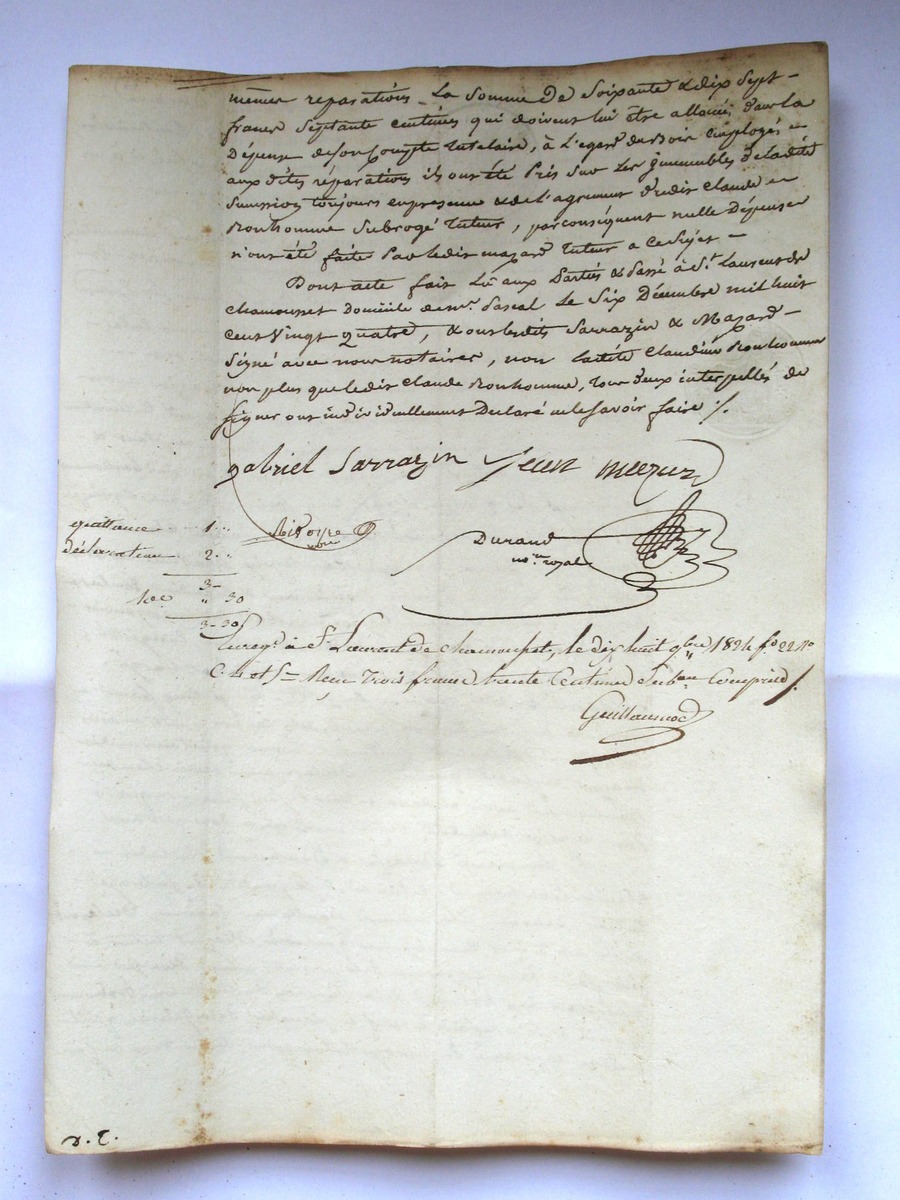 mêmes reparations la somme de soixante & dix sept
francs septante centimes qui doivent lui être alloués dans la
dépense de son compte tutelaire, à l'egard du bois employés
aux dites réparations ils ont été pris sur les immeubles de ladite
toujours en presence & de l'agrement dudit Claude
Bonhomme subrogé tuteur, par conséquent nulle dépense
n'ont été faite par ledit mazard tuteur a ce sujet
Dont acte fait lû aux parties & passé à St Laurent de
chamousset domicile de me. Pascal le six Décembre mil huit
cent vingt quatre, & ont lesdits Sarrazin & Mazard
signé avec nous notaires, non ladite Claudine Bonhomme
non plus que ledit Claude Bonhomme, tous deux interpellés de
signer ont individuellement declaré ne le savoir faire ./.
gabriel Sarrazin Jean
quittance 1 "
Durand
déclaration 2 "
nore royal
3 -
10e " 30
3 - 30
Enregt. à St. Laurent de chamousset, le dix huit 1824 fo. 22 ro
C. 4 et 5 Reçu trois francs trente Centimes compris ./.